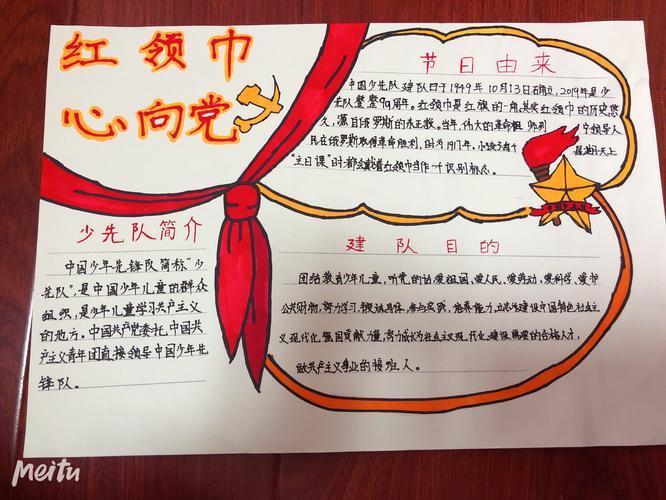 红领巾
心向党
节日由来
中国少年队建队日于1949年10月13日确立,2019年是少
先队整整70周年。红领巾是红旗的一角,其实红领巾的历史悠
久,源自俄罗斯的东正教。当年,伟大的革命
领导人
民在俄罗斯取得革命胜利,时为1917年,小孩子
天上
"主日课"时都会戴着红领巾当作一个识别标志。
中国少先队
少先队简介
中国少年先锋队简称"少
先队",是中国少年儿童的群众
组织,是少年儿童学习共产主义
的地方。中国共产党委托,中国共
产主义青年团直接领导中国少年先
锋队。
建队目的
团结教育少年儿童,听党的话,爱祖国、爱人民、爱劳动、爱科学、爱护
公共财物,努力学习,锻炼身体,参与实践,培养能力,立志为建设中国特色社会主
义现代化强国贡献力量,努力成长为社会主义现代化建设需要的合格人才,
做共产主义事业的接班人。
meitu